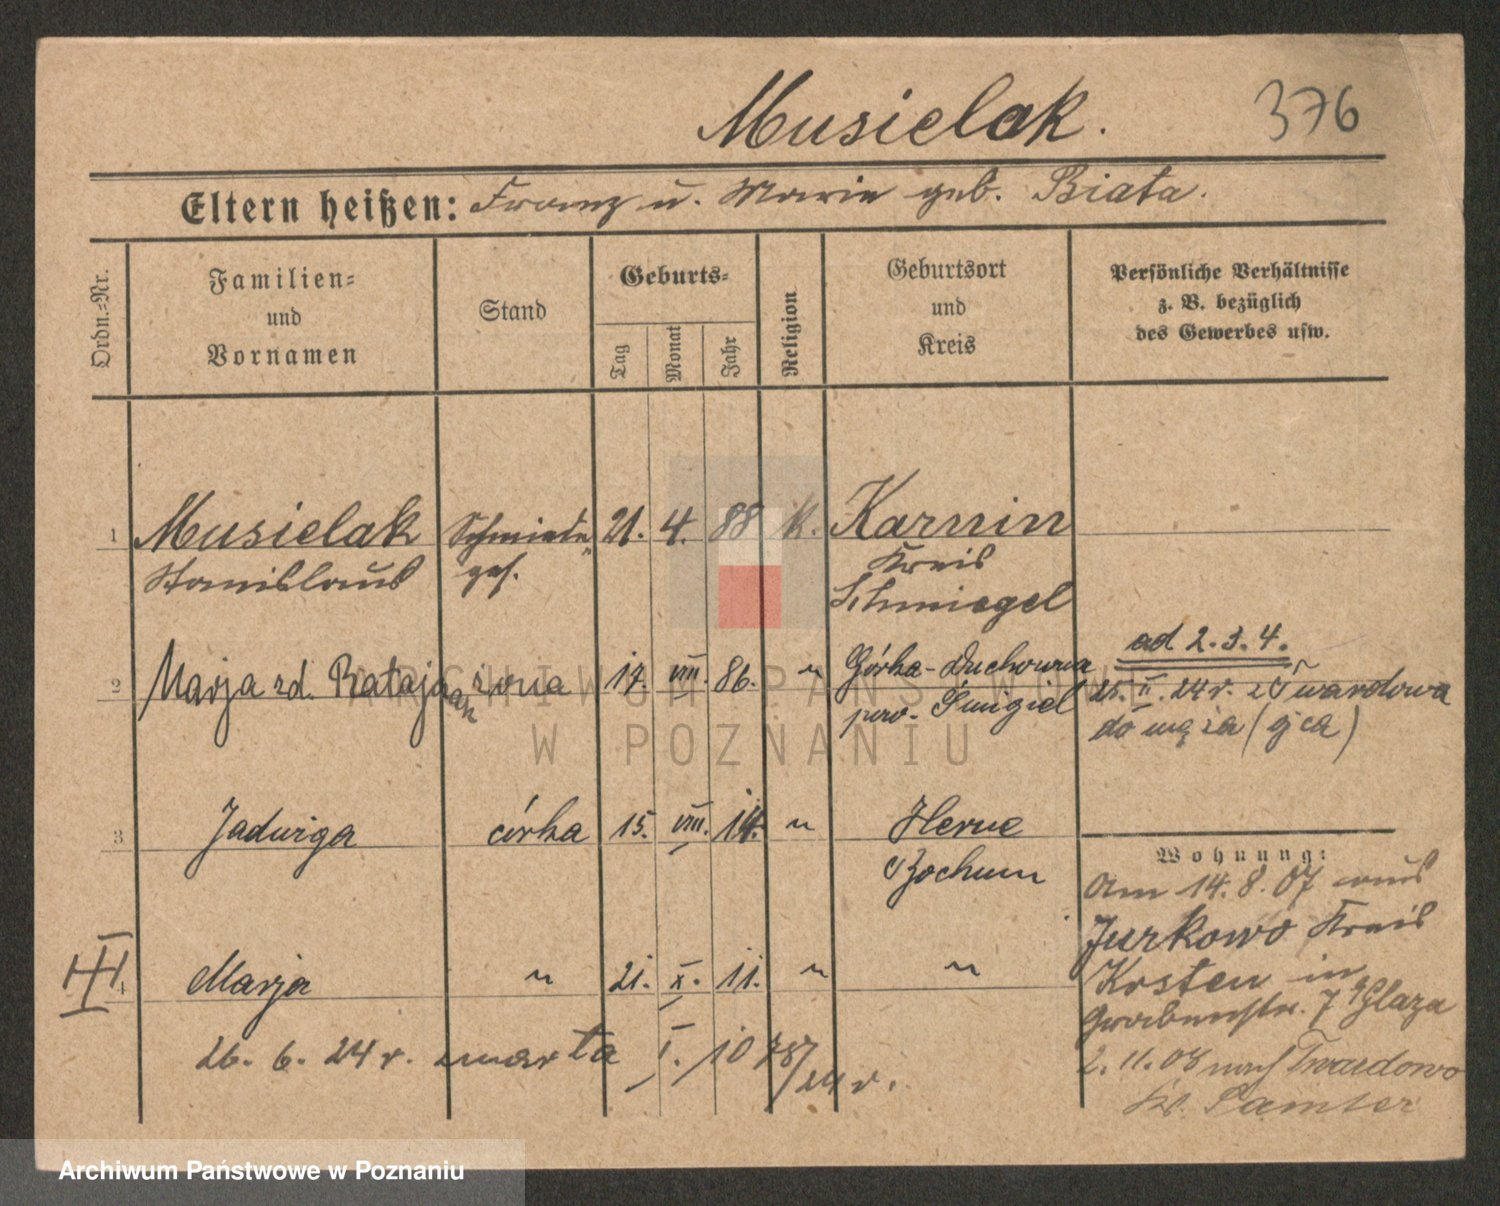 Musielak.
376
Eltern heißen: Franz u. Marie geb. Biata.
Ordn.-Nr.
Familien-
und
Vornamen
Stand
Geburts-
Tag
Monat
Jahr
Religion
Geburtsort
und
Kreis
Persönliche Verhältnisse
z. B. bezüglich
des Gewerbes usw.
1 Musielak Schmiede 21. 4. 88 k. Karnin
Stanislaus ges. Kreis
Schmiegel
ad 2.3.4.
2 Marja zd. Ratajczak żona 17. VIII. 86. " Górka-Duchowna
pow. Śmigiel
25. II. 24 r. z Twardowa
do męża (ojca)
3 Jadwiga córka 15. VIII. 14. " Herne
Bochum
Wohnung:
Am 14.8.07 aus
Jurkowo Kreis
Kosten in
Grabenstr. 7 Glaza
2.11.08 nach Twardowo
Kr. Samter
III
4 Marja " 21. X. 11. " "
26. 6. 24 r. zmarła I./10 787/24 r.
ARCHIWUM PAŃSTWOWE
W POZNANIU
Archiwum Państwowe w Poznaniu